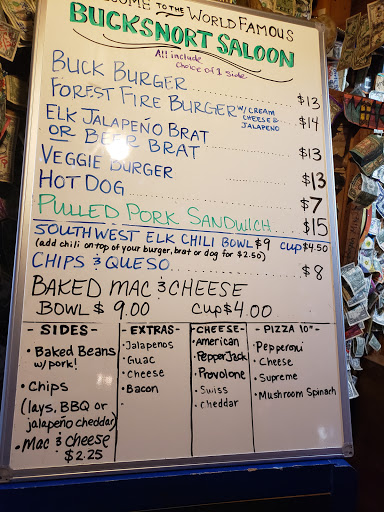 TO THE WORLD FAMOUS
BUCKSNORT SALOON
All include
Choice of 1 side
BUCK BURGER $13
FOREST FIRE BURGER W/ CREAM CHEESE & JALAPENO $14
ELK JALAPEÑO BRAT
OR BEER BRAT $13
VEGGIE BURGER $13
HOT DOG $7
PULLED PORK SANDWICH $15
SOUTHWEST ELK CHILI BOWL $9 CUP $4.50
(add chili on top of your burger, brat or dog for $2.50)
CHIPS & QUESO $8
BAKED MAC & CHEESE
BOWL $ 9.00 CUP $4.00
- SIDES -
• Baked Beans
w/ pork!
• Chips
(lays, BBQ or
jalapeño cheddar)
• Mac & Cheese
$2.25
- EXTRAS -
• Jalapenos
• Guac
• Cheese
• Bacon
- CHEESE -
• American
• PepperJack
• Provolone
• Swiss
• Cheddar
- PIZZA 10" -
• Pepperoni
• Cheese
• Supreme
• Mushroom Spinach